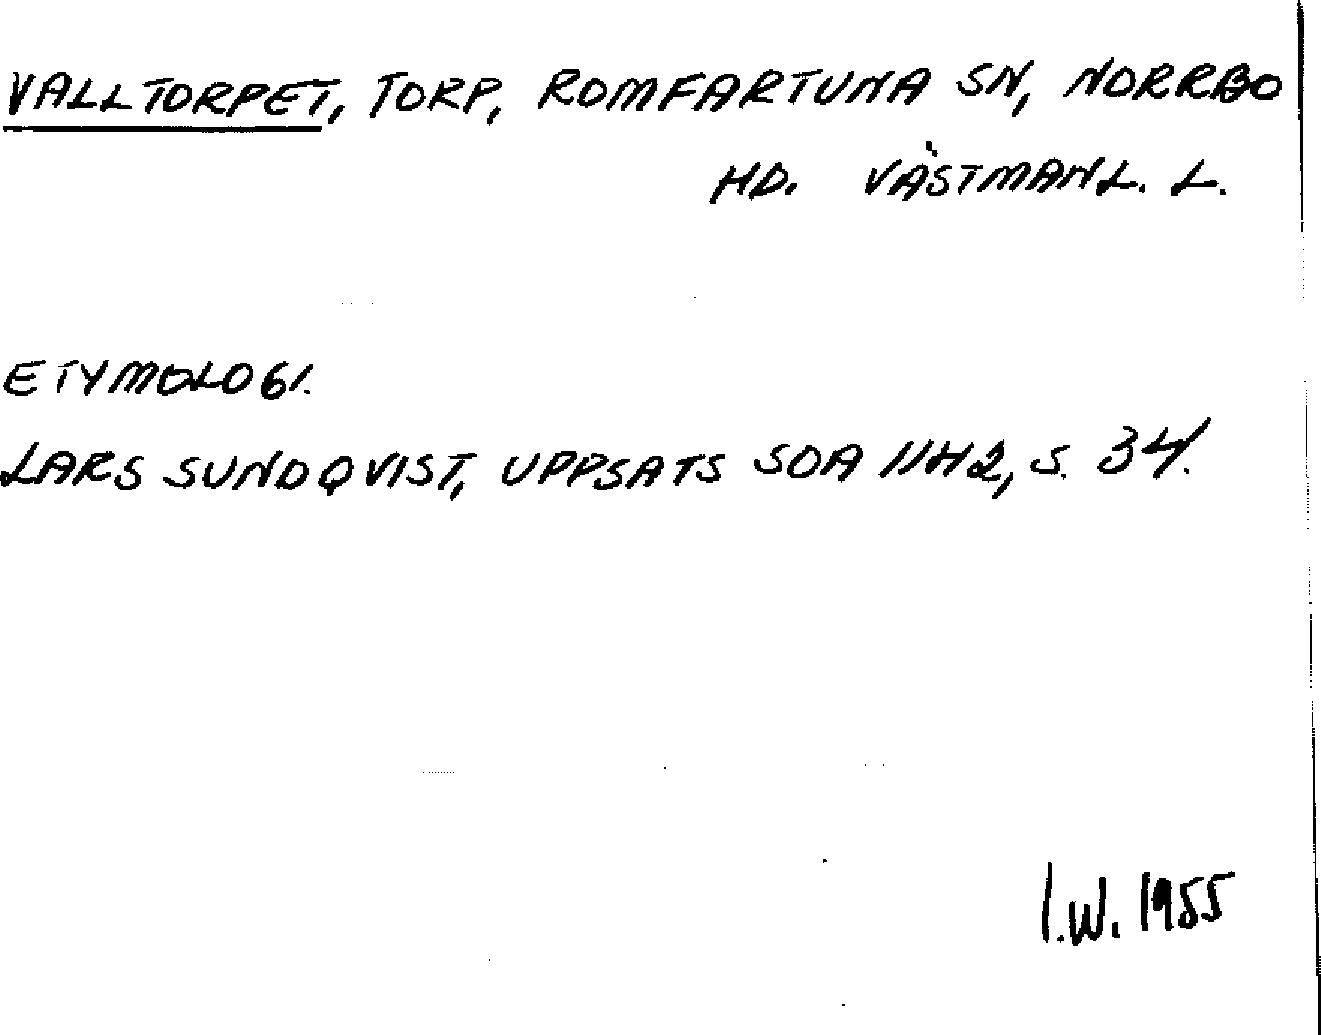 VALLTORPET, TORP, ROMFARTUNA SN, NORRBO
HD. VÄSTMANL. L.
ETYMOLOGI.
LARS SUNDQVIST, UPPSATS SOA 11H2, S. 34.
I.W. 1955